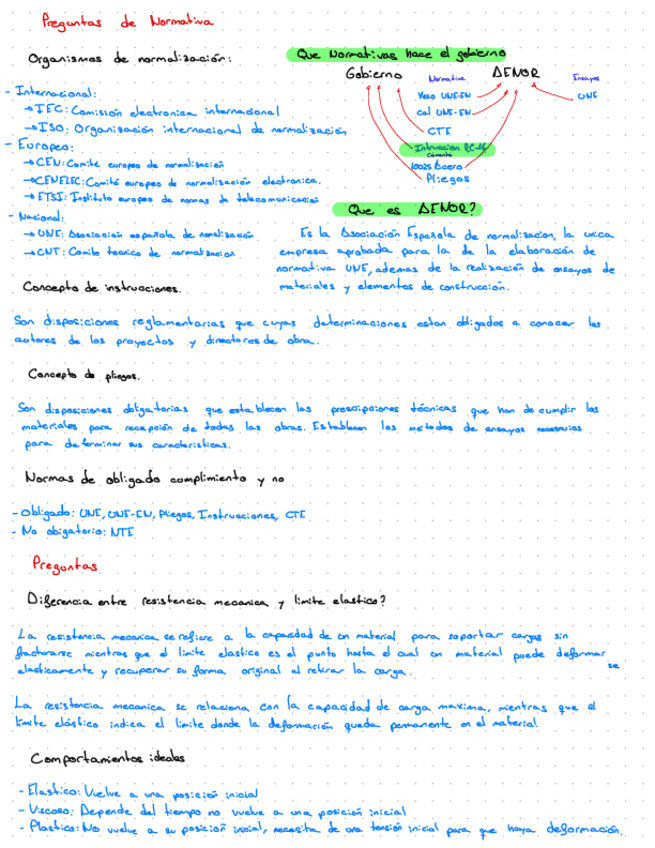 Preguntas de Normativa
Organismos de normalización:
- Internacional:
→ IEC: Comisión electronica internacional
→ ISO: Organización internacional de normalización
- Europeo:
→ CEN: Comité europeo de normalización
→ CENELEC: Comité europeo de normalización electronica.
→ ETSI: Instituto europeo de normas de telecomunicación
- Nacional:
→ UNE: Asociación española de normalización
→ CNT: Comite tecnico de normalización
Que Normativas hace el gobierno
Gobierno Normativa AENOR Ensayos
Yeso UNE-EN UNE
Cal UNE-EN
CTE
Intruccion RC-16
Cemento
10025 Acero
Pliegos
Que es AENOR?
Es la Asociación Española de normalizacion, la unica
empresa aprobada para la de la elaboración de
normativa UNE, ademas de la realización de ensayos de
materiales y elementos de construcción.
Concepto de instrucciones.
Son disposiciones reglamentarias que cuyas determinaciones estan obligados a conocer los
autores de los proyectos y directores de obra.
Concepto de pliegos.
Son disposiciones obligatorias que establecen las prescipciones técnicas que han de cumplir los
materiales para recepción de todas las obras. Establecen los metodos de ensayos necesarios
para determinar sus caracteristicas.
Normas de obligado cumplimiento y no
- Obligado: UNE, UNE-EN, Pliegos, Instrucciones, CTE
- No obigatorio: NTE
Preguntas
Diferencia entre resistencia mecanica y limite elastico?
La resistencia mecanica se refiere a la capacidad de un material para soportar cargas sin
fracturarse mientras que el limite elastico es el punto hasta el cual un material puede deformar
se
elasticamente y recuperar su forma original al retirar la carga.
La resistencia mecanica se relaciona con la capacidad de carga maxima, mientras que el
limite elástico indica el limite donde la deformación queda permanente en el material.
Comportamientos ideales
- Elastico: Vuelve a una posición inicial
- Viscoso: Depende del tiempo no vuelve a una posición inicial
- Plastico: No vuelve a su posición inicial, necesita de una tensión inicial para que haya deformación.